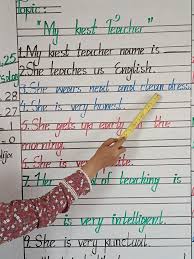 Topic:
"My Best Teacher"
1. My best teacher name is
2. She teaches us English.
3. She wears neat and clean dress.
4. She is very honest.
5. She gets up early in the
morning.
7. Her of teaching is
is very intelligent.
9. She is very punctual.
25
28